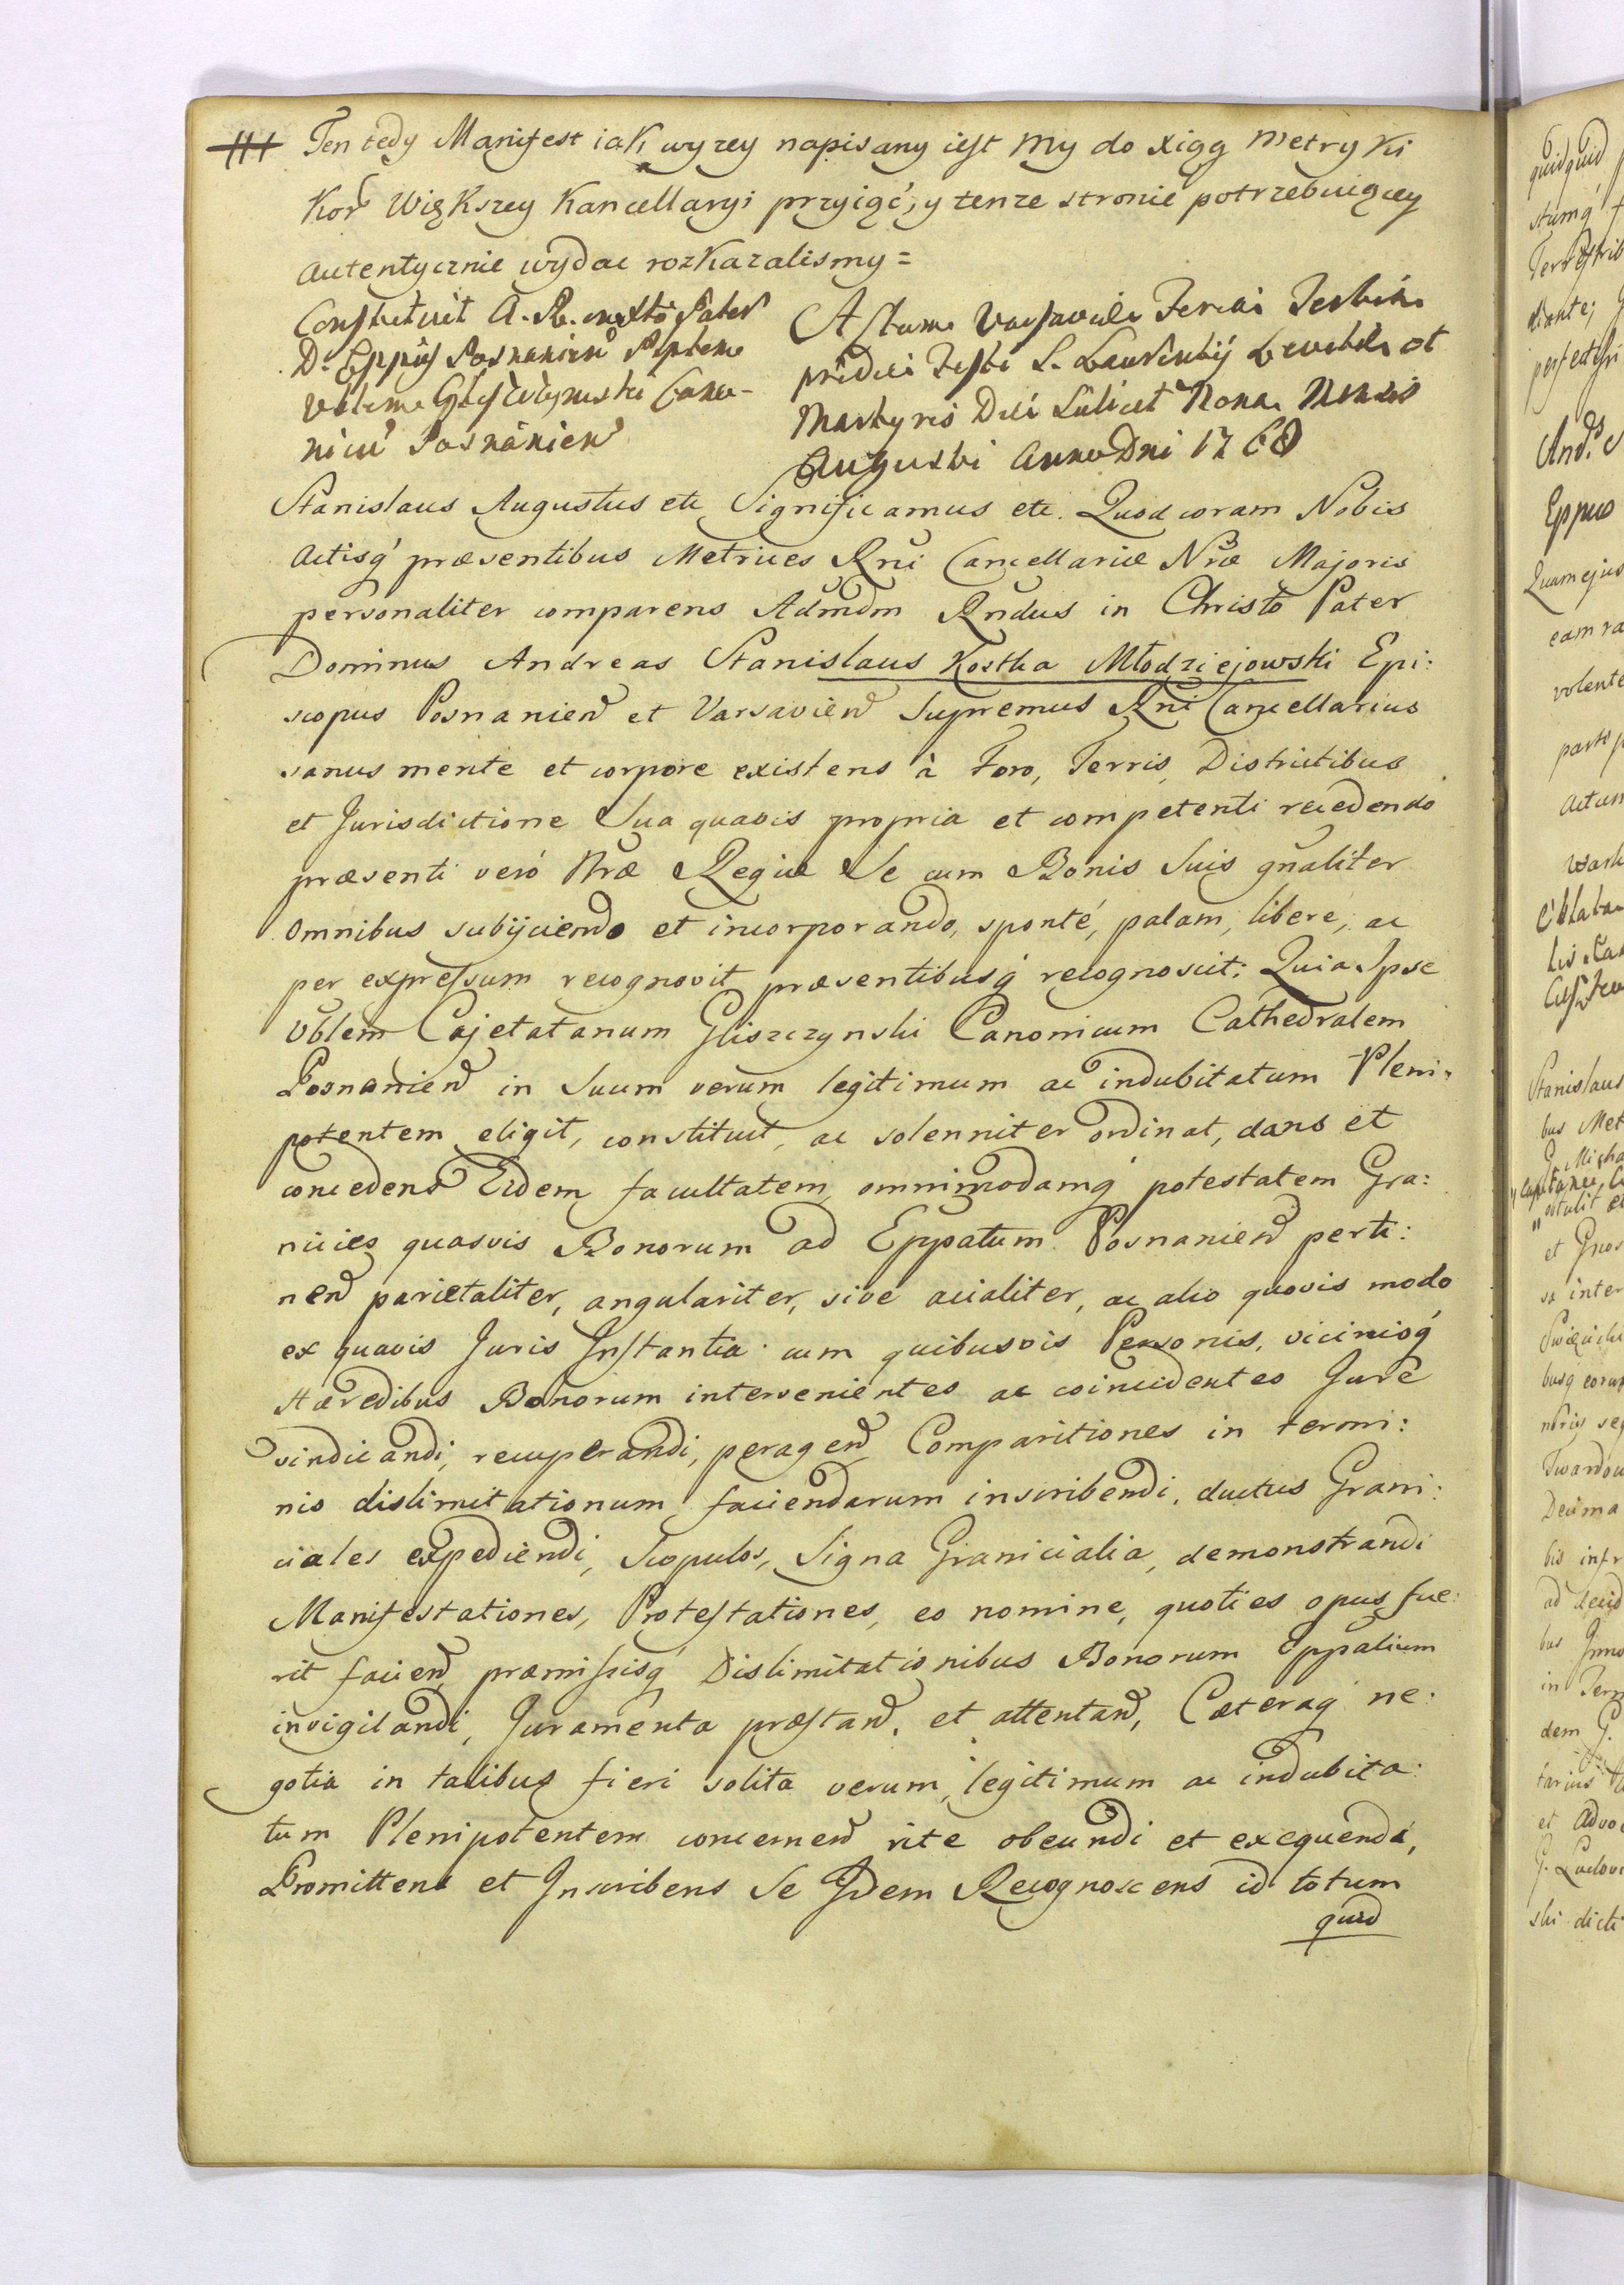 Ten tedy Manifest iak wyzey napisany iest my do xiąg Metryki
Kor Większey Kancellaryi przyiąć, y tenze stronie potrzebuiącey
autentycznie wydac rozkazalismy =
Constituit A. R. in Xto Pater
Dr Eppus Posnanien
Canonicu Posnanien
Actum Varsaviæ Feria Tertia
pridie Festi S. Laurentij Levitæ et
Martyris Die Scilicet Nona Mensis
Augusti Anno Dni 1768
Stanislaus Augustus etc Significamus etc. Quod coram Nobis
Actisq præsentibus Metrices Rni Cancellariæ Nræ Majoris
personaliter comparens Admdm Rndus in Christo Pater
Dominus Andreas Stanislaus Kostka Młodziejowski Epi:
scopus Posnanien et Varsavien Supremus Rni Cancellarius
sanus mente et corpore existens à Foro, Terris, Districtibus
et Jurisdictione Sua quavis propria et competenti recedendo
præsenti veró Nræ Regiæ Se cum Bonis Suis gnaliter
omnibus subijciendo et incorporando, sponté, palam, libere, ac
per expressum recognovit præsentibusq recognoscit: Quia Ipse
Vblem Cajetatanum Gliszczynski Canonicum Cathedralem
Posnanien in Suum verum legitimum ac indubitatum Pleni:
potentem eligit, constituit, ac solenniter ordinat, dans et
concedens Eidem facultatem, omnimodamq potestatem Gra:
nicies quasvis Bonorum ad Eppatum Posnanien perti:
nen parietaliter, angulariter, sivé acialiter, ac alio quovis modo
ex quavis Juris Instantia cum quibusvis Personis, vicinisq
Hæredibus Bonorum intervenientes ac coincidentes Jure
vindicandi, recuperandi, peragen, Comparitiones in termi:
nis dislimitationum faciendarum inscribendi, ductus Grani:
ciales expediendi, Scopulos, Signa Granicialia, demonstrandi
Manifestationes, Protestationes, eo nomine, quoties opus fue:
rit facien, præmissisq Dislimitationibus Bonorum Eppalium
invigilandi, Juramenta præstan, et attentan, Cæteraq ne:
gotia in talibus fieri solita verum, legitimum ac indubita:
tum Plenipotentem concernen rite obeundi et exequendi,
Promittens et Inscribens Se Idem Recognoscens id totum
quid